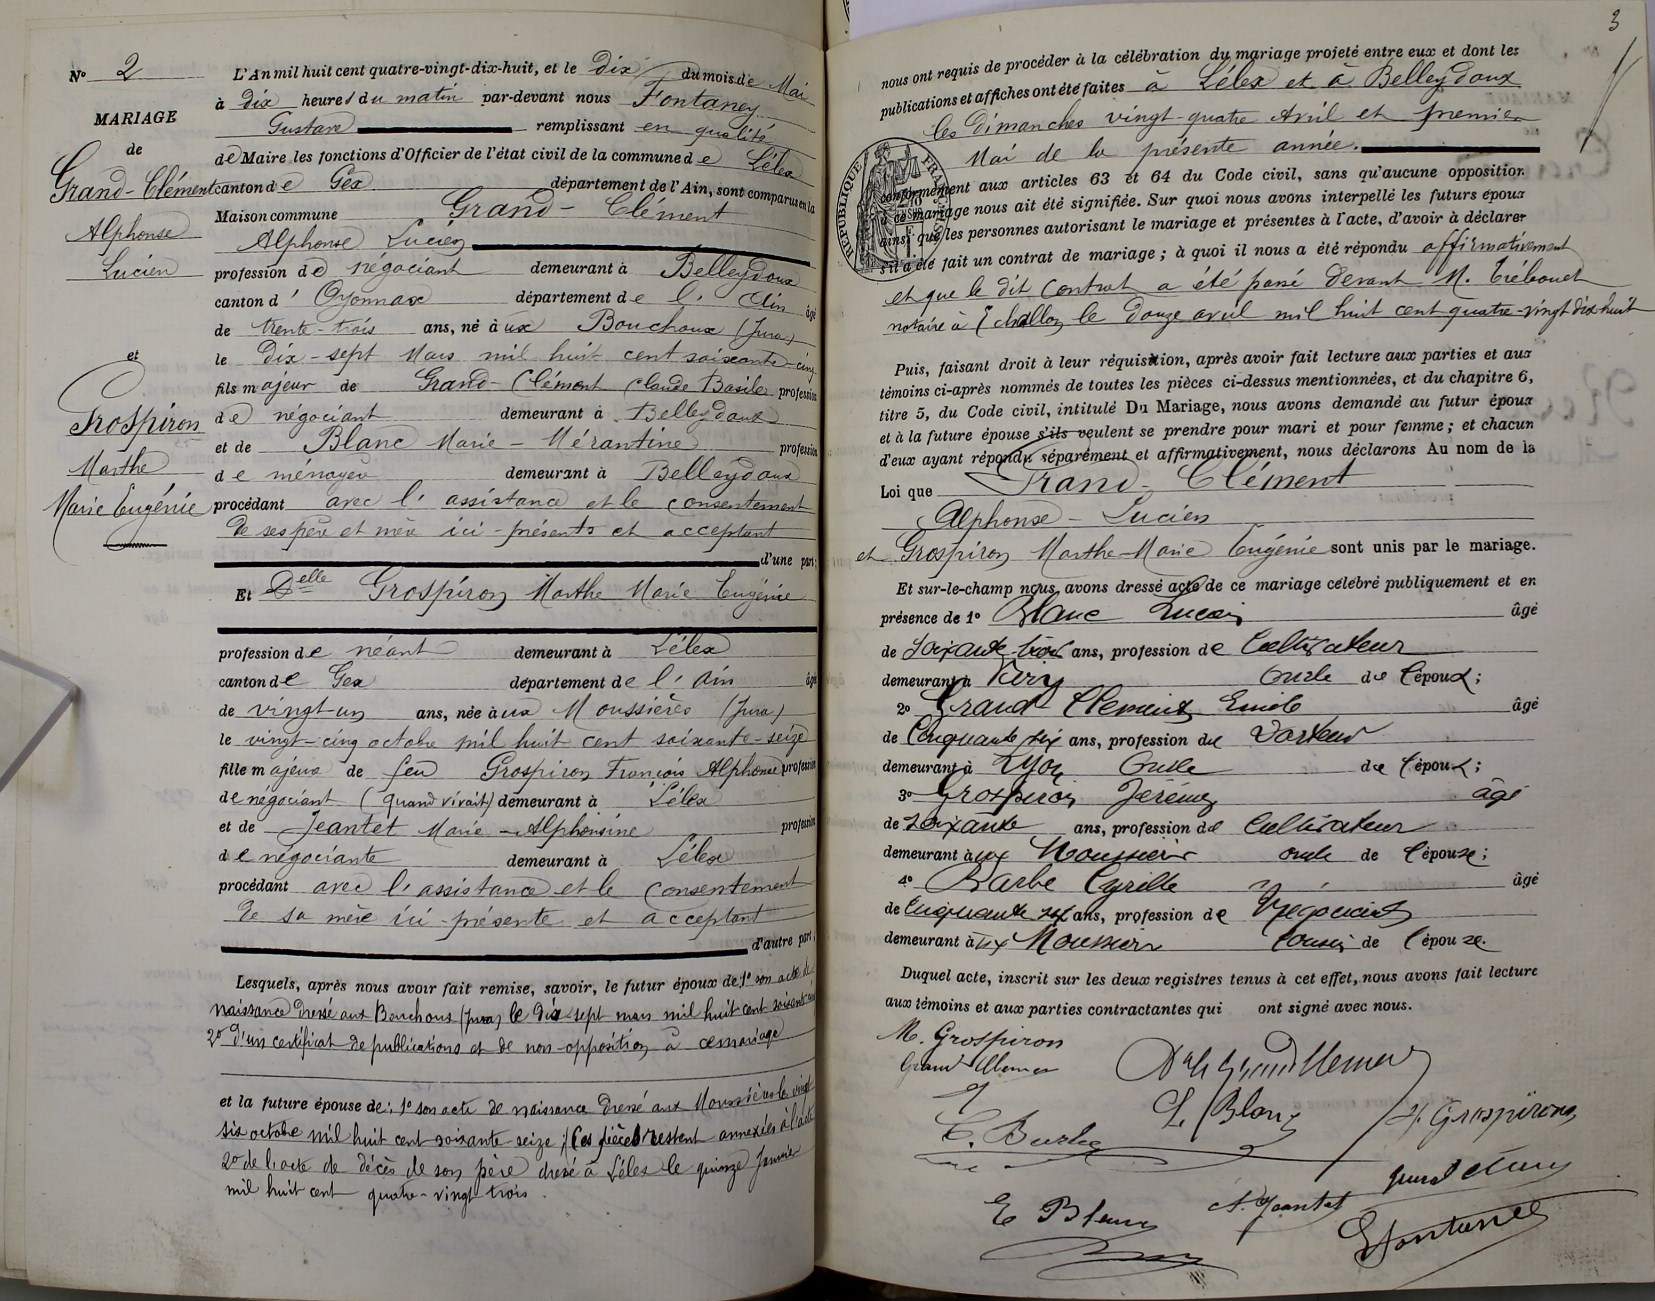 Nº 2
MARIAGE
de
Grand-Clément
Alphonse
Lucien
et
Grospiron
Marthe
Marie Eugénie
L'An mil huit cent quatre-vingt-dix-huit, et le dix du mois de Mai
à dix heures du matin par-devant nous Fontaney
Gustave remplissant en qualité
de Maire les fonctions d'Officier de l'état civil de la commune de Lélex
canton de Gex département de l'Ain, sont comparus en la
Maison commune Grand-Clément
Alphonse Lucien
profession de négociant demeurant à Belleydoux
canton d'Oyonnax département de l'Ain âgé
de trente-trois ans, né aux Bouchoux (Jura)
le dix-sept Mars mil huit cent soixante-cinq
fils majeur de Grand-Clément Claude Basile profession
de négociant demeurant à Belleydoux
et de Blanc Marie-Mérantine profession
de ménagère demeurant à Belleydoux
procédant avec l'assistance et le consentement
de ses père et mère ici-présents et acceptant
d'une part;
Et Delle Grospiron Marthe Marie Eugénie
profession de néant demeurant à Lélex
canton de Gex département de l'Ain âgé
de vingt-un ans, née aux Moussières (Jura)
le vingt-cinq octobre mil huit cent soixante-seize
fille majeure de feu Grospiron François Alphonse profession
de négociant (quand vivait) demeurant à Lélex
et de Jeantet Marie-Alphonsine profession
de négociante demeurant à Lélex
procédant avec l'assistance et le consentement
de sa mère ici-présente et acceptant
d'autre part;
Lesquels, après nous avoir fait remise, savoir, le futur époux de: 1º son acte de
naissance dressé aux Bouchoux (Jura) le dix-sept mars mil huit cent soixante-cinq
2º d'un certificat de publications et de non-opposition à ce mariage
et la future épouse de: 1º son acte de naissance dressé aux Moussières le vingt
six octobre mil huit cent soixante seize /(Ces pièces restent annexées à l'acte
2º de l'acte de décès de son père dressé à Lélex le quinze Janvier
mil huit cent quatre-vingt trois.
3
nous ont requis de procéder à la célébration du mariage projeté entre eux et dont les
publications et affiches ont été faites à Lélex et à Belleydoux
les dimanches vingt-quatre Avril et premier
Mai de la présente année.
RÉPUBLIQUE FRANÇAISE
conformément aux articles 63 et 64 du Code civil, sans qu'aucune opposition
à ce mariage nous ait été signifiée. Sur quoi nous avons interpellé les futurs époux
ainsi que les personnes autorisant le mariage et présentes à l'acte, d'avoir à déclarer
s'il a été fait un contrat de mariage; à quoi il nous a été répondu affirmativement
et que le dit contrat a été passé devant M. Trébouet
notaire à Échallon le douze avril mil huit cent quatre-vingt dix huit
Puis, faisant droit à leur réquisition, après avoir fait lecture aux parties et aux
témoins ci-après nommés de toutes les pièces ci-dessus mentionnées, et du chapitre 6,
titre 5, du Code civil, intitulé Du Mariage, nous avons demandé au futur époux
et à la future épouse s'ils veulent se prendre pour mari et pour femme; et chacun
d'eux ayant répondu séparément et affirmativement, nous déclarons Au nom de la
Loi que Grand-Clément
Alphonse-Lucien
et Grospiron Marthe-Marie Eugénie sont unis par le mariage.
Et sur-le-champ nous avons dressé acte de ce mariage célébré publiquement et en
présence de 1º Blanc Lucain âgé
de soixante trois ans, profession de Cultivateur
demeurant à Viry Oncle de l'époux;
2º Grand Clément Emile âgé
de Cinquante six ans, profession de Docteur
demeurant à Lyon Oncle de l'époux;
3º Grospiron Jérémy âgé
de Soixante ans, profession de Cultivateur
demeurant aux Moussières oncle de l'épouse;
4º Barbe Cyrille âgé
de Cinquante six ans, profession de Négociant
demeurant aux Moussières Cousin de l'épouse.
Duquel acte, inscrit sur les deux registres tenus à cet effet, nous avons fait lecture
aux témoins et aux parties contractantes qui ont signé avec nous.
M. Grospiron
Grand Clément
L. Blanc
J. Grospiron
C. Barbe
E Blanc
A. Jeantet
Grand Clément
G Fontaney